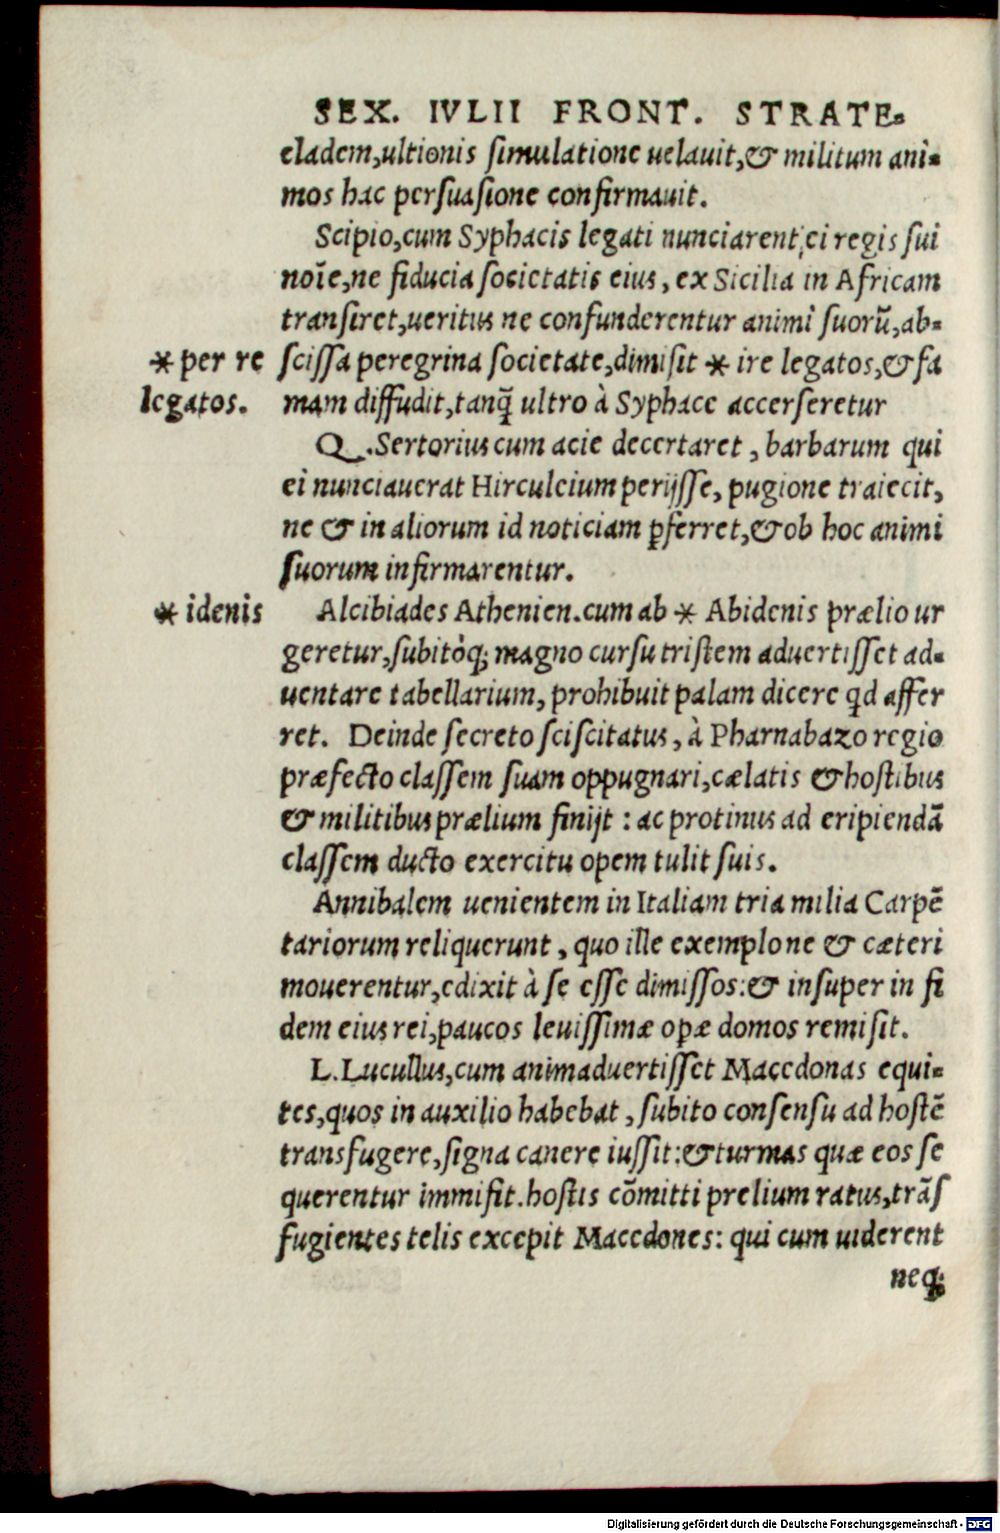 SEX. IVLII FRONT. STRATE-
cladem,ultionis ſimulatione uelauit,& militum ani-
mos hac perſuaſione confirmauit.
Scipio,cum Syphacis legati nunciarent,ei regis ſui
noĩe,ne fiducia ſocietatis eius, ex Sicilia in Africam
tranſiret,ueritus ne confunderentur animi ſuorũ,ab-
* per re ſciſſa peregrina ſocietate,dimiſit * ire legatos,& fa
legatos. mam diffudit,tanq̃ ultro à Syphace accerſeretur
Q.Sertorius cum acie decertaret, barbarum qui
ei nunciauerat Hirculeium perijſſe, pugione traiecit,
ne & in aliorum id noticiam ꝑferret,& ob hoc animi
ſuorum infirmarentur.
* idenis Alcibiades Athenien.cum ab * Abidenis prælio ur
geretur,ſubitòq; magno curſu triſtem aduertiſſet ad-
uentare tabellarium, prohibuit palam dicere qd affer
ret. Deinde ſecreto ſciſcitatus, à Pharnabazo regio
præfecto claſſem ſuam oppugnari,cælatis & hoſtibus
& militibus prælium finijt : ac protinus ad eripiendã
claſſem ducto exercitu opem tulit ſuis.
Annibalem uenientem in Italiam tria milia Carpẽ
tariorum reliquerunt, quo ille exemplo ne & cæteri
mouerentur,edixit à ſe eſſe dimiſſos:& inſuper in fi
dem eius rei,paucos leuiſſimæ opæ domos remiſit.
L.Lucullus,cum animaduertiſſet Macedonas equi-
tes,quos in auxilio habebat, ſubito conſenſu ad hoſtẽ
transfugere,ſigna canere iuſſit:& turmas quæ eos ſe
querentur immiſit.hoſtis cõmitti prelium ratus,trãſ
fugientes telis excepit Macedones: qui cum uiderent
neq;
Digitalisierung gefördert durch die Deutsche Forschungsgemeinschaft - DFG